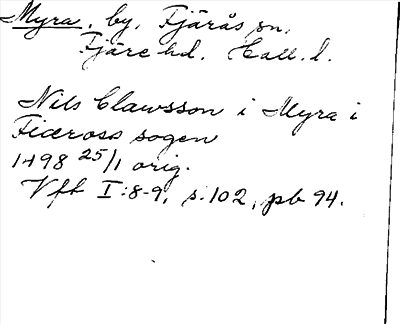 Myra, by, Fjärås sn,
Fjäre hd. Hall. l.
Nils Clawsson i Myra i
Fiæross sogen
1498 25/1 orig.
Vfh I:8-9, s. 102, pb 94.